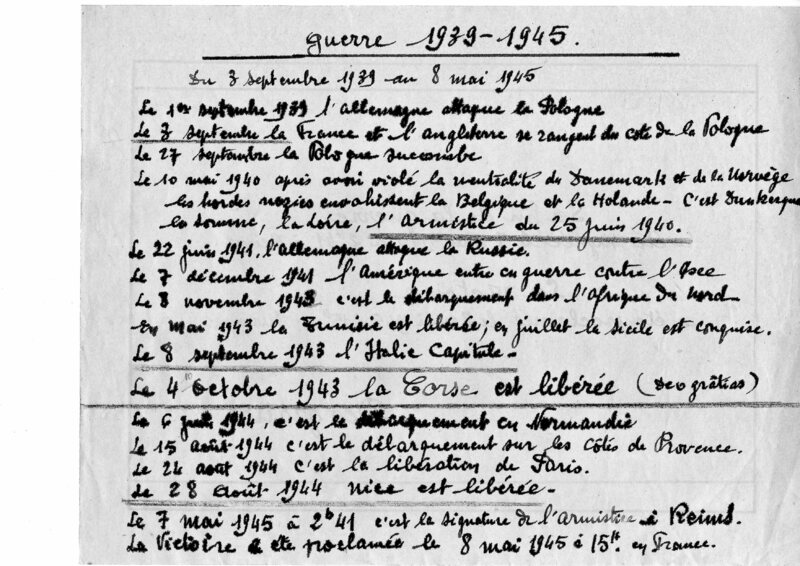 guerre 1939-1945.
Du 3 septembre 1939 au 8 mai 1945
Le 1er septembre 1939 l'allemagne attaque la Pologne
Le 3 septembre la France et l'angleterre se rangent du coté de la Pologne
Le 27 septembre la Pologne succombe
Le 10 mai 1940 après avoir violé la neutralité du Danemark et de la Norvège
les hordes nazies envahissent la Belgique et la Holande - C'est Dunkerque
la Somme, la Loire, l'armistice du 25 juin 1940.
Le 22 juin 1941, l'allemagne attaque la Russie.
Le 7 décembre 1941 l'Amérique entre en guerre contre l'axe
Le 8 novembre 1943 c'est le débarquement dans l'Afrique du nord-
En mai 1943 la Tunisie est libérée; en juillet la Sicile est conquise.
Le 8 septembre 1943 l'Italie Capitule-
Le 4 octobre 1943 la Corse est libérée (Deo grâtias)
Le 6 juin 1944, c'est le débarquement en Normandie
Le 15 août 1944 c'est le débarquement sur les Côtes de Provence.
Le 24 août 1944 c'est la libération de Paris.
Le 28 août 1944 nice est libérée-
Le 7 mai 1945 à 2h41 c'est la signature de l'armistice à Reims.
La Victoire a été proclamée le 8 mai 1945 à 15h en France.